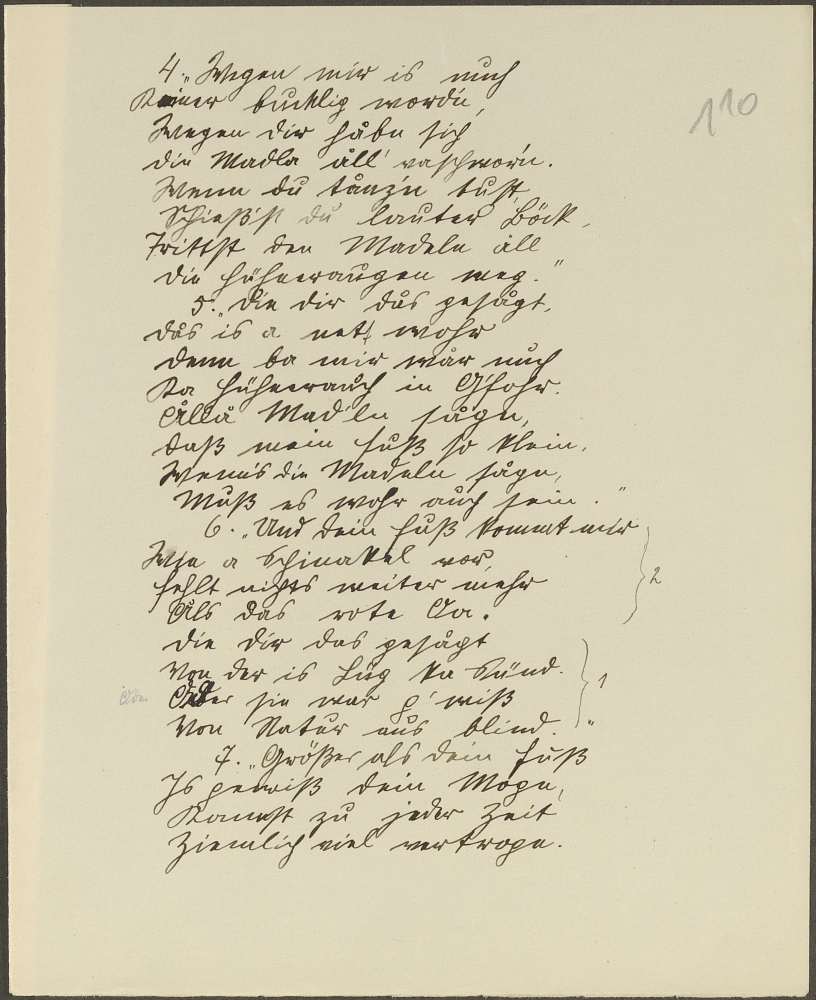 110
4. „Wegen mir is nuch
Keiner bucklig wordn,
Wegen dir håbn sich
die Madla åll' vaschworn.
Wenn du tånzn tust,
Schießst du lauter Böck,
Trittst den Madeln åll
die Hühneraugen weg.“
5. „Die dir dås gesågt,
dås is a nett wohr
denn ba mir wår nuch
Ka Hühneraug in G'fohr.
Ållå Mad'ln sågn,
daß mein Fuß so klein,
Wenn's die Madeln sågn,
Muß es wohr auch sein.“
6. „Und dein Fuß kommt mir
Wie a Schinakel vor,
Fehlt nichts weiter mehr
Als das rote Aa.
2
die dir das gesågt
Von der is Lüg ka Sünd.
1
Aber
Oder sie war g'wiß
Von Natur aus blind.“
7. „Größer als dein Fuß
Is gewiß dein Mogn,
Kannst zu jeder Zeit
Ziemlich viel vertrogn.